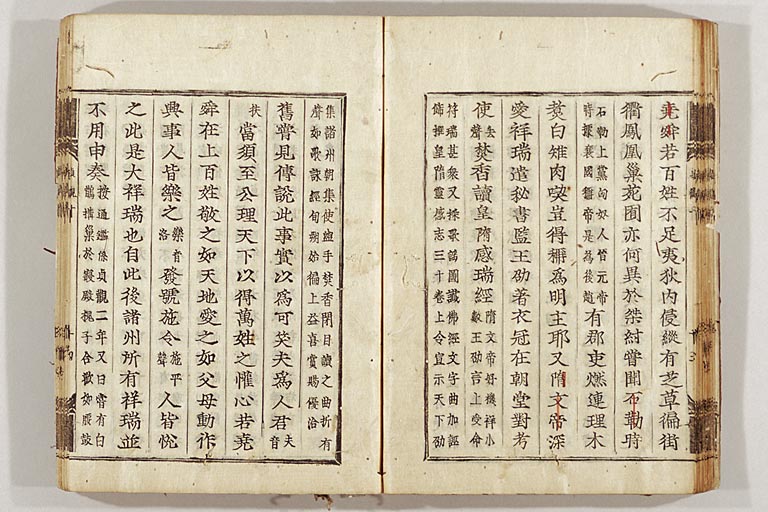 堯舜若百姓不足夷狄內侵縱有芝草徧街
衢鳳凰巢苑囿亦何異於桀紂嘗聞石勒時
石勒上黨匈奴人晉元帝
時據襄國僭帝是爲後趙
有郡吏燃連理木
煑白雉肉喫豈得稱爲明主耶又隋文帝深
愛祥瑞遣秘書監王劭著衣冠在朝堂對考
使
去聲
焚香讀皇隋感瑞經
隋文帝好禨祥小
數王劭言上受命
符瑞甚衆又採歌謠圖讖佛經文字曲加誣
飾撰皇隋靈感志三十卷上令宣示天下劭
集諸州朝集使盥手焚香閉目讀之曲折有
聲如歌詠經旬朔始徧上益喜賞賜優洽
舊嘗見傳說此事實以爲可笑夫爲人君
夫音
扶
當須至公理天下以得萬姓之懽心若堯
舜在上百姓敬之如天地愛之如父母動作
興事人皆樂之
樂音
洛
發號施令
施平
聲
人皆悅
之此是大祥瑞也自此後諸州所有祥瑞並
不用申奏
按通鑑係貞觀二年又曰嘗有白
鵲構巢於寢殿槐上合歡如腰鼓